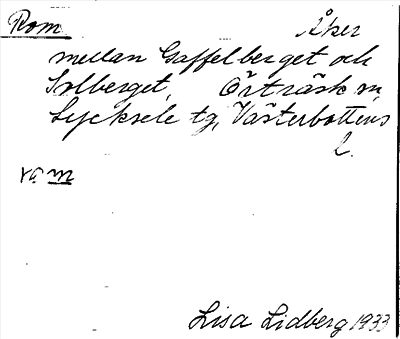 Rom Åker
mellan Gaffelberget och
Solberget, Örträsk sn,
Lycksele tg, Västerbottens
l.
Lisa Lidberg 1933